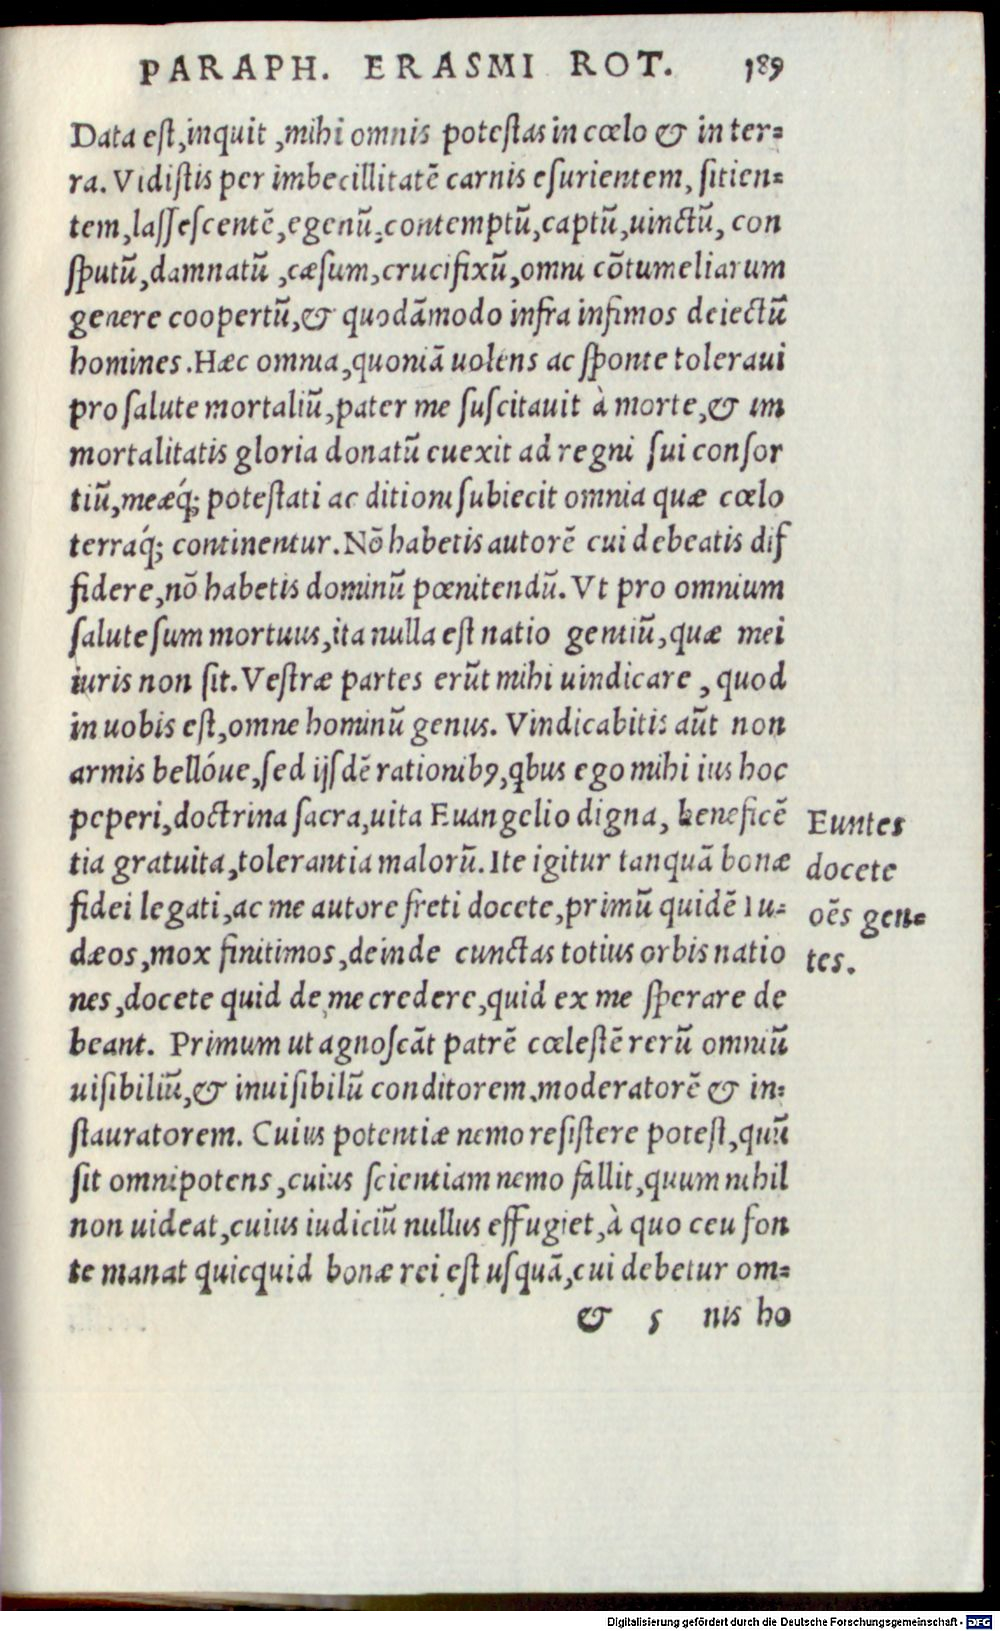 PARAPH. ERASMI ROT. 189
Data est, inquit, mihi omnis potestas in cœlo & in ter=
ra. Vidistis per imbecillitatē carnis esurientem, sitien=
tem, lassescentē, egenū, contemptū, captū, uinctū, con
sputū, damnatū, cæsum, crucifixū, omni cōtumeliarum
genere coopertū, & quodāmodo infra infimos deiectū
homines. Hæc omnia, quoniā uolens ac sponte toleraui
pro salute mortaliū, pater me suscitauit à morte, & im
mortalitatis gloria donatū euexit ad regni sui consor
tiū, meæq́; potestati ac ditioni subiecit omnia quæ cœlo
terraq́; continentur. Nō habetis autorē cui debeatis dif
fidere, nō habetis dominū pœnitendū. Vt pro omnium
salute sum mortuus, ita nulla est natio gentiū, quæ mei
iuris non sit. Vestræ partes erūt mihi uindicare, quod
in uobis est, omne hominū genus. Vindicabitis aūt non
armis bellóue, sed ijsdē rationibꝰ, qbus ego mihi ius hoc
peperi, doctrina sacra, uita Euangelio digna, beneficē
tia gratuita, tolerantia malorū. Ite igitur tanquā bonæ
fidei legati, ac me autore freti docete, primū quidē Iu=
dæos, mox finitimos, deinde cunctas totius orbis natio
nes, docete quid de me credere, quid ex me sperare de
beant. Primum ut agnoscāt patrē cœlestē rerū omniū
uisibiliū, & inuisibiliū conditorem, moderatorē & in=
stauratorem. Cuius potentiæ nemo resistere potest, quū
sit omnipotens, cuius scientiam nemo fallit, quum nihil
non uideat, cuius iudiciū nullus effugiet, à quo ceu fon
te manat quicquid bonæ rei est usquā, cui debetur om=
& 5 nis ho
Euntes
docete
oēs gen=
tes.
Digitalisierung gefördert durch die Deutsche Forschungsgemeinschaft - DFG